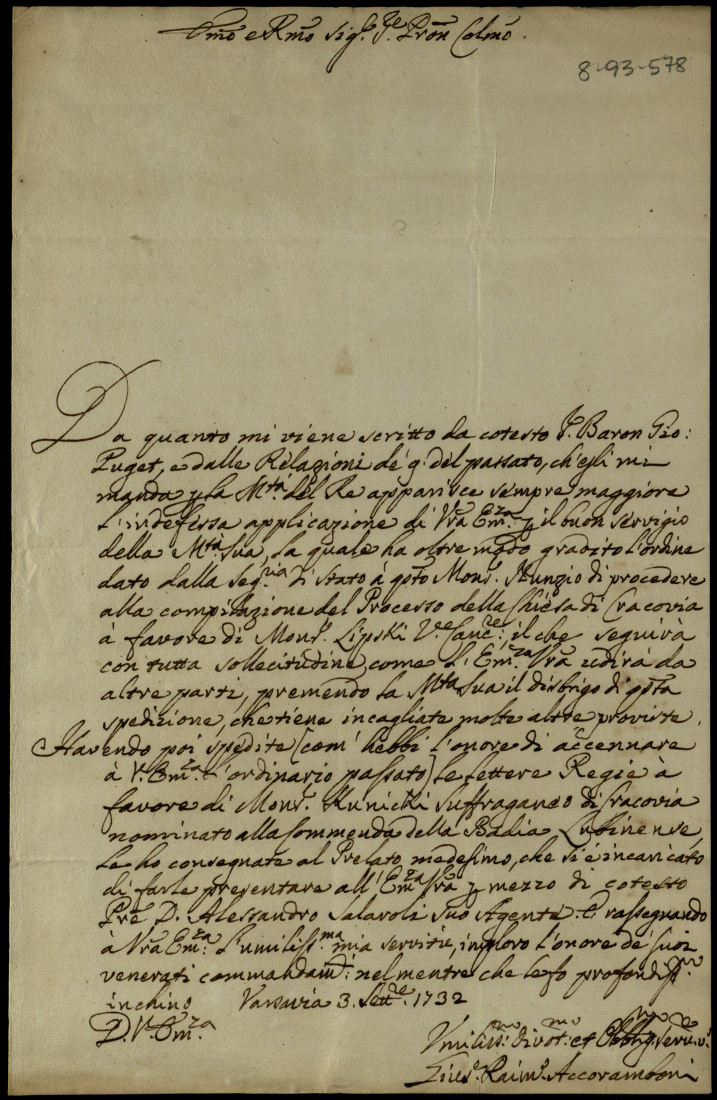 Emo e Rmo Sigr. Pe. Pron Colmo.
8-93-578
Da quanto mi viene scritto da cotesto Sr. Baron Gio:
Puget, e dalle Relazioni de' 9. del passato, ch'egli mi
manda p la Mtà del Re apparisce sempre maggiore
l'indefessa applicazione di Vra Emza. p il buon servigio
della Mtà Sua, la quale ha oltre modo gradito l'ordine
dato dalla Segria di Stato à qsto Monsr. Nunzio di procedere
alla compilazione del Processo della Chiesa di Cracovia
à favore di Monsr. Lipski Ve Cancre: il che seguirà
con tutta sollecitudine, come l'Emza Vra udirà da
altre parti, premendo la Mtà Sua il disbrigo di qsta
spedizione, che tiene incagliate molte altre proviste.
Havendo poi spedite [com' hebbi l'onore di accennare
à V. Emza. l'ordinario passato] le lettere Regie à
favore di Monsr. Kunicki Suffraganeo di Cracovia
nominato alla Commenda della Badia Lubinense,
le ho consegnate al Prelato medesimo, che si è incaricato
di farle presentare all'Emza Vra p mezzo di cotesto
Pre D. Alessandro Salaroli Suo Agente. E rassegnando
à Vra Emza. l'umilissma mia servitù, imploro l'onore de' suoi
venerati commandamti: nel mentre che le fo profondissmo.
inchino Varsavia 3. Settre. 1732
D. V. Emza
Umilissmo: divotmo: et Obbligmo servre v.
Gius. Raimo. Accoramboni